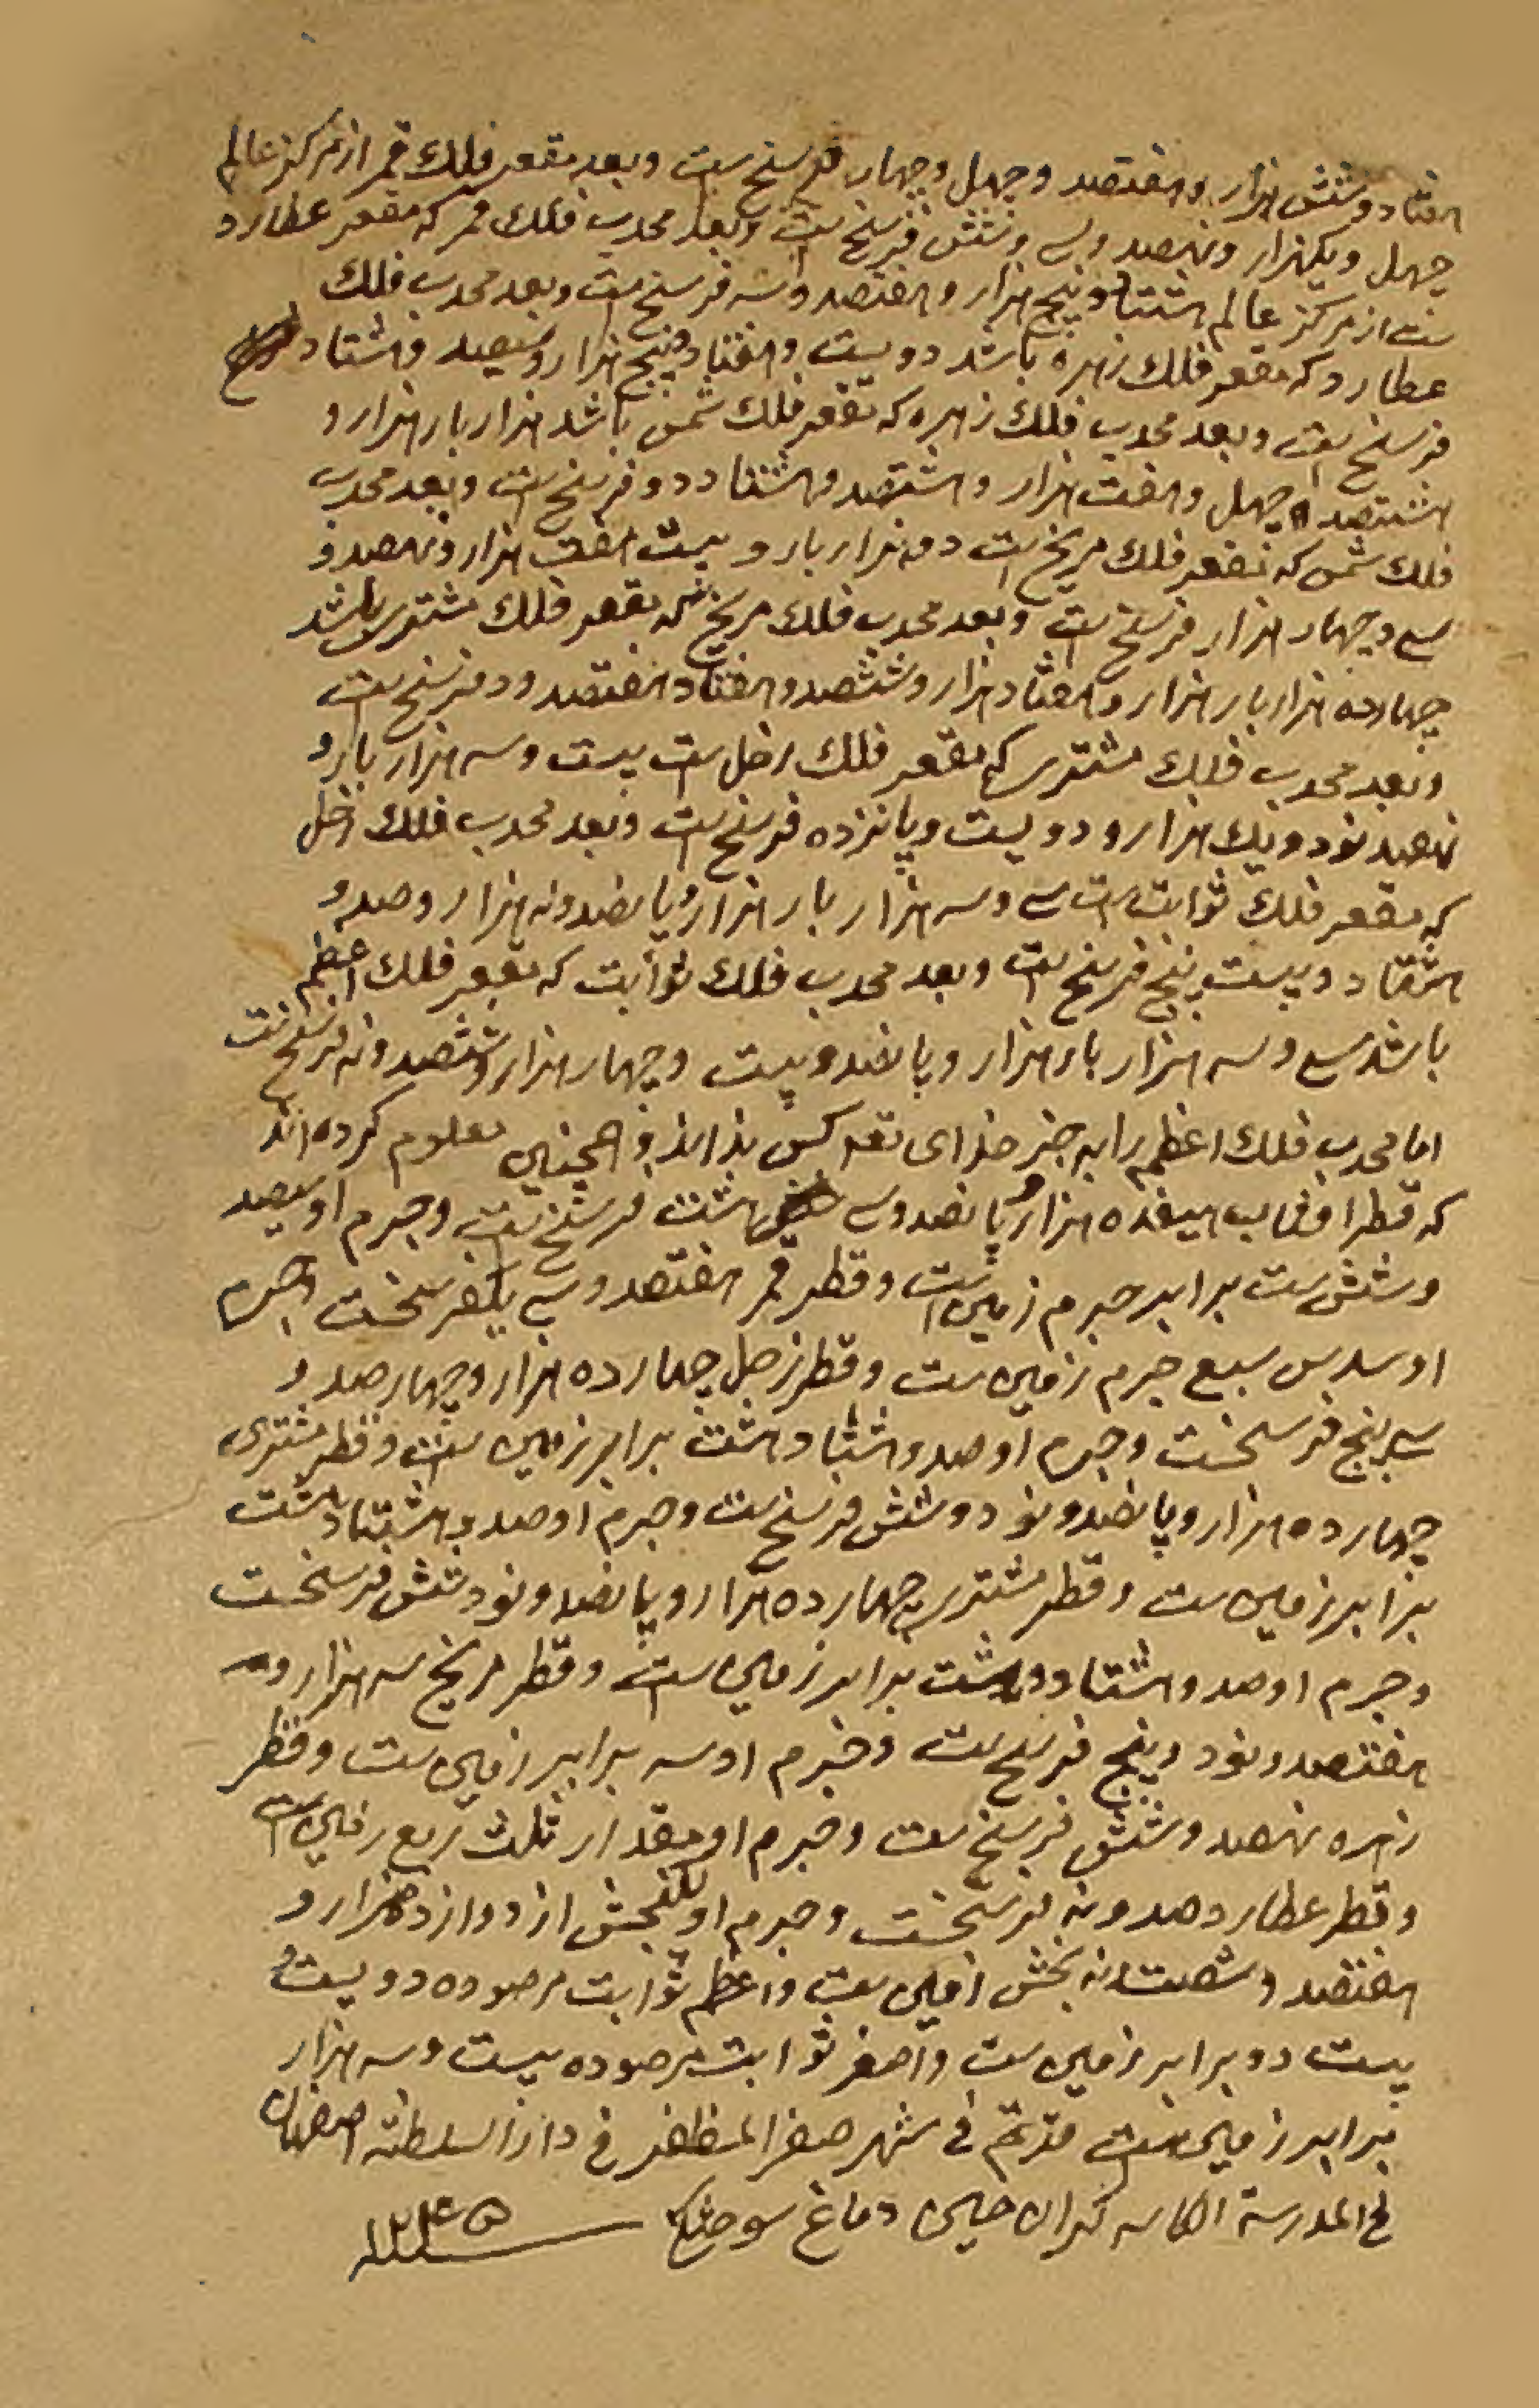 هفتاد و شش هزار و هفتصد و چهل و چهار فرسنخ ست و بعد مقعر فلك قمر از مركز عالم
چهل و یکهزار و نهصد و سی و شش فرسخ ست و بعد محدب فلك قمر که مقعر عطارد
ست از مرکز عالم هشتاد و پنج هزار و هفتصد و سه فرسنخ ست و بعد محدب فلك
عطارد که مقعر فلك زهره باشد دویست و هفتاد و پنج هزار و سیصد و هشتاد
فرسنخ ست و بعد محدب فلك زهره که مقعر فلك شمس باشد هزار بار هزار و
هشتصد و چهل و هفت هزار و هشتصد و هشتاد و دو فرسنخ ست و بعد محدب
فلك شمس که مقعر فلك مریخ ست دو هزار بار و بیست هفت هزار و نهصد و
سی و چهار هزار فرسنخ ست و بعد محدب فلك مریخ که مقعر فلك مشتری باشد
چهارده هزار بار هزار و هفتاد هزار و ششصد و هفتاد هفتصد و دو فرسنخ ست
و بعد محدب فلك مشتری که مقعر فلك زحل ست بیست و سه هزار بار و
نهصد نود و یك هزار و دویست و پانزده فرسنخ ست و بعد محدب فلك زحل
که مقعر فلك ثوابت ست سی و سه هزار بار هزار و پانصد و نه هزار و صد و
هشتاد و بیست پنج فرسنخ ست و بعد محدب فلك ثوابت که مقعر فلك اعظم
باشد سی و سه هزار بار هزار و پانصد و بیست و چهار هزار و ششصد و نه فرسنخ ست
اما محدب فلك اعظم را به جز خدای تعه کس نداند و همچنین معلوم کرده اند
که قطر افتاب هیفده هزار و پانصد و سی هشت فرسنخ ست و جرم او سیصد
و شش ست برابر جرم زمین ست و قطر قمر هفتصد و سی یکفرسخست و جرم
او سدس سبع جرم زمین ست و قطر زحل چهارده هزار و چهار صد و
سی پنج فرسخست و جرم او صد و هشتاد و هشت برابر زمین ست و قطر مشتری
چهارده هزار و پانصد و نود و شش فرسنخ ست و جرم او صد و هشتاد هشت
برابر زمین ست و قطر مشتری چهارده هزار و پانصد و نود شش فرسخست
و جرم او صد و هشتاد و هشت برابر زمین ست و قطر مریخ سه هزار و
هفتصد و نود و پنج فرسنخ ست و جرم او سه برابر زمین ست و قطر
زهره نهصد و شش فرسنخ ست و جرم او مقدار ثلث ربع زمین ست
و قطر عطارد صد و نه فرسخست و جرم او یکبخش از دوازده هزار و
هفتصد و شصت نه بخش زمین ست و اعظم ثوابت مرصوده دویست و
بیست دو برابر زمین ست و اصغر ثوابت مرصوده بیست و سه هزار
برابر زمین ست قد تم فی شهر صفر المظفر فی دار السلطنه اصفهان
فی المدرسة الکاسه گران دماغ ۱۲۴۵